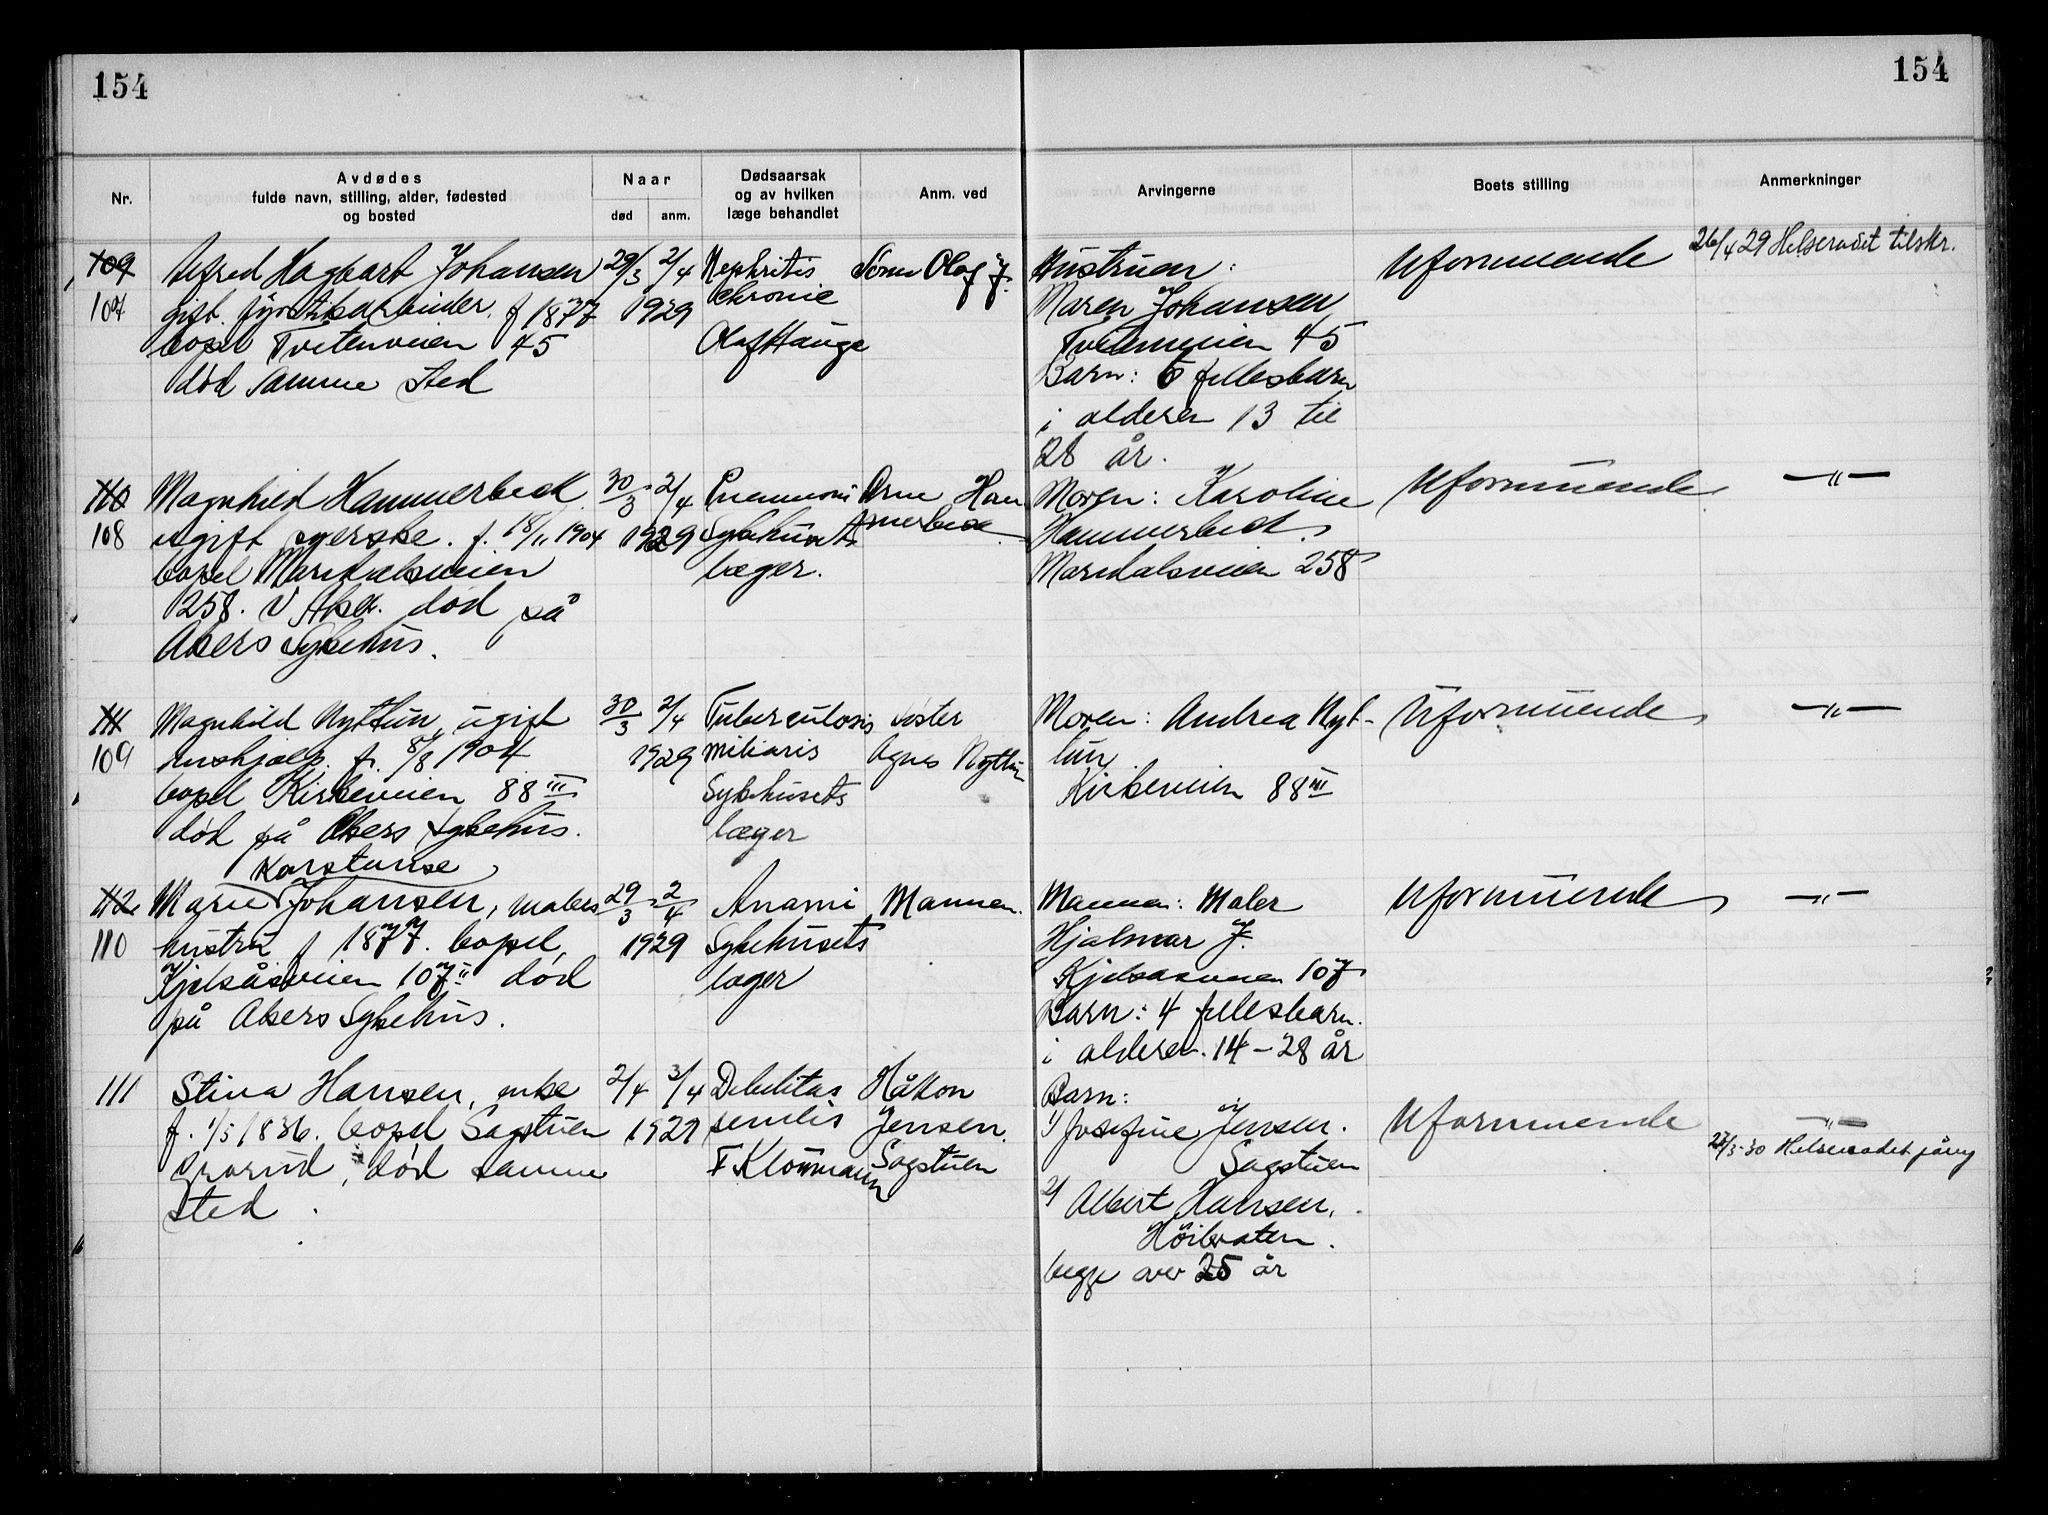 154
154
Nr.
Avdødes
fulde navn, stilling, alder, fødested
og bosted
Naar
død
anm.
Dødsaarsak
og av hvilken
læge behandlet
Anm. ved
Arvingerne
Boets stilling
Anmerkninger
109
107
Alfred Hagbart Johansen
gift. fyrstikarbeider. f 1877
bopel Tvetenveien 45
død samme sted
29/3 2/4
1929
Nephritis
chronic
Olaf Hauge
Sønn Olaf J.
Hustruen:
Maren Johansen
Tvetenveien 45
Barn: 6 fellesbarn
i alderen 13 til
28 år.
Uformuende
26/4 29 Helserådet tilskr.
110
108
Magnhild Hammerbeck
ugift syerske. f. 18/11 1904
bopel Maridalsveien
258. V Aker. død på
Akers Sykehus.
30/3 2/4
1929
Pneumoni
Sykehusets
læger.
Arne Ham
merbeck
Moren: Karoline
Hammerbeck
Maridalsveien 258
Uformuende
—"—
111
109
Magnhild Nyttun, ugift
hushjælp. f. 8/8 1904
bopel Kirkeveien 88 III
død på Akers Sykehus.
30/3 2/4
1929
Tuberculosis
miliaris
Sykehusets
læger
søster
Agnes Nyttun
Moren: Andrea Nyt-
tun
Kirkeveien 88 III
Uformuende
—"—
112
110
Karstanse
Marie Johansen, malers
hustru f 1877. bopel,
Kjelsåsveien 107 II død
på Akers Sykehus.
29/3 2/4
1929
Anami
Sykehusets
læger
Mannen.
Mannen: Maler
Hjalmar J.
Kjelsasveien 107
Barn: 4 fellesbarn.
i alderen 14 – 28 år
Uformuende
—"—
111
Stina Hansen, enke
f. 1/5 1836. bopel Sagstuen
Grorud, død samme
sted.
2/4 3/4
1929
Debilitas
senilis
F Kloumann
Håkon
Jensen.
Sagstuen
Barn:
1) Josefine Jensen.
Sagstuen
2) Albert Hansen.
Höibraten.
begge over 25 år
Uformuende
—"—
/3-30 Helseraadet